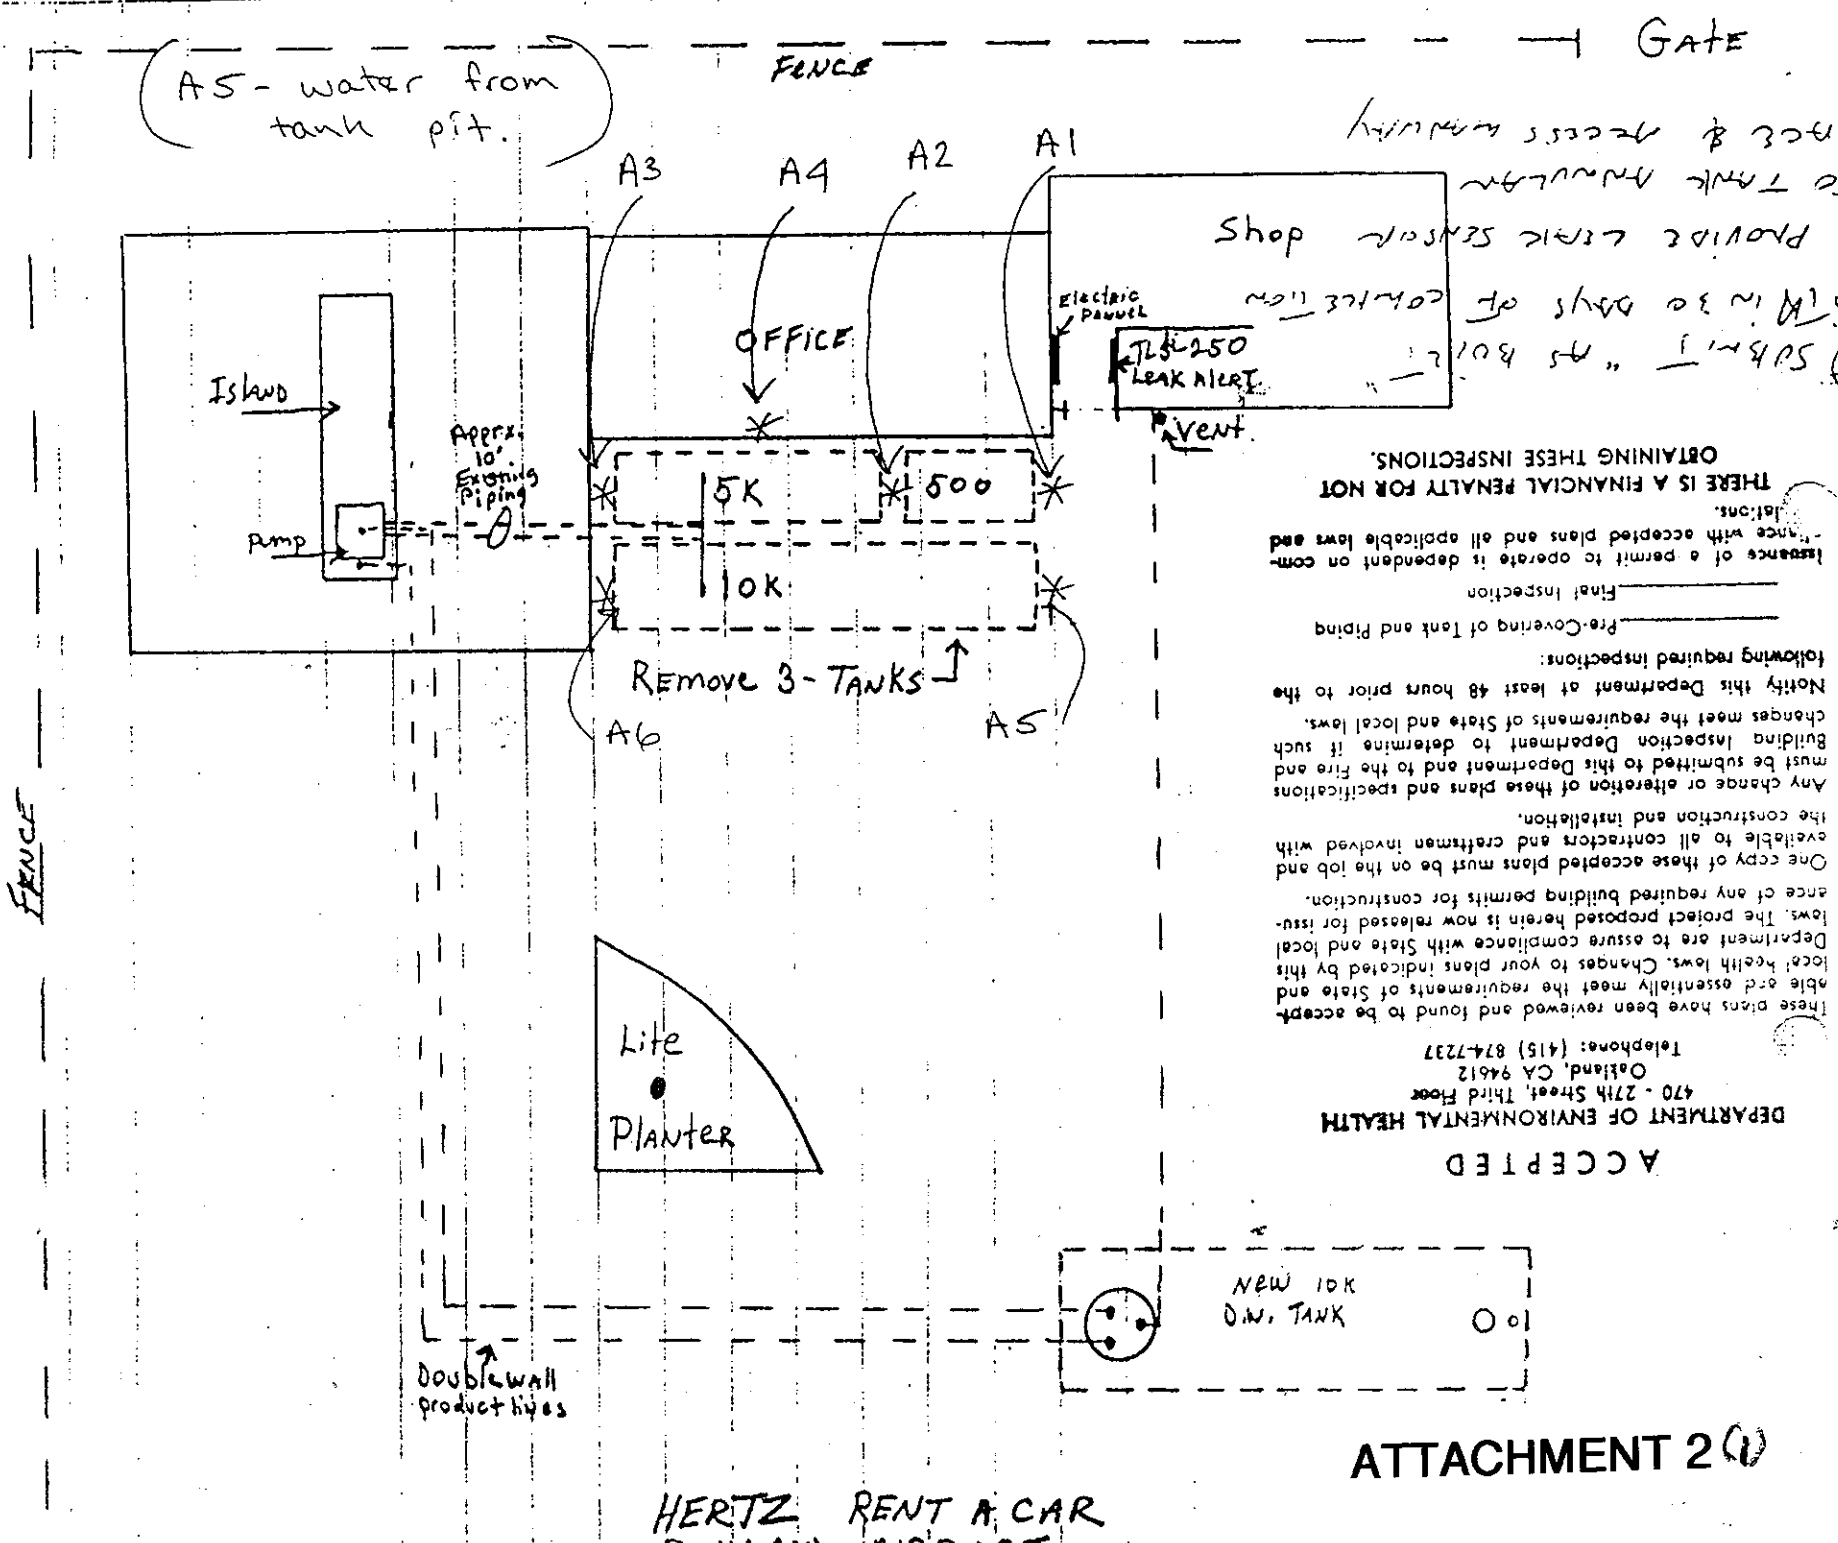 GATE
FENCE
A5 - water from
tank pit.
A3
A4
A2
A1
Shop
Electric
Pannel
OFFICE
TLS-250
Leak Alert
Vent.
Island
Apprx.
10'
Existing
Piping
5K
500
Pump
10K
Remove 3-TANKS
A6
A5
FENCE
Lite
Planter
New 10K
D.W. TANK
Double wall
product lines
ATTACHMENT 2 (1)
HERTZ RENT A CAR
ACCEPTED
DEPARTMENT OF ENVIRONMENTAL HEALTH
470 - 27th Street, Third Floor
Oakland, CA 94612
Telephone: (415) 874-7237
These plans have been reviewed and found to be accept-
able and essentially meet the requirements of State and
local health laws. Changes to your plans indicated by this
Department are to assure compliance with State and local
laws. The project proposed herein is now released for issu-
ance of any required building permits for construction.
One copy of these accepted plans must be on the job and
available to all contractors and craftsmen involved with
the construction and installation.
Any change or alteration of these plans and specifications
must be submitted to this Department and to the Fire and
Building Inspection Department to determine if such
changes meet the requirements of State and local laws.
Notify this Department at least 48 hours prior to the
following required inspections:
Pre-Covering of Tank and Piping
Final Inspection
Issuance of a permit to operate is dependent on com-
liance with accepted plans and all applicable laws and
lations.
THERE IS A FINANCIAL PENALTY FOR NOT
OBTAINING THESE INSPECTIONS.
SUBMIT "AS BUILT"
in 30 DAYS OF COMPLETION
PROVIDE LEAK SENSOR
TANK ANNULAR
& ACCESS